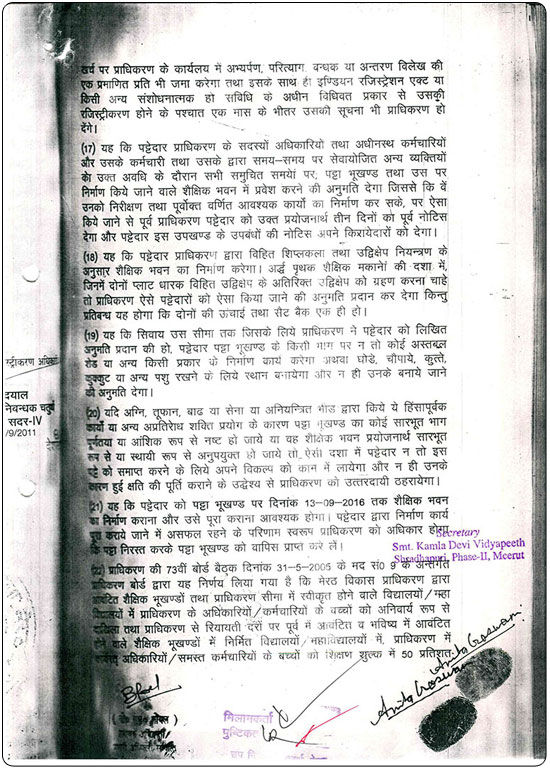 खर्च पर प्राधिकरण के कार्यलय में अभ्यर्पण, परित्याग, बन्धक या अन्तरण विलेख की
एक प्रमाणित प्रति भी जमा करेगा तथा इसके साथ ही इण्डियन रजिस्ट्रेशन एक्ट या
किसी अन्य संशोधनात्मक हो सविधि के अधीन विधिवत प्रकार से उसकी
रजिस्ट्रीकरण होने के पश्चात एक मास के भीतर उसकी सूचना भी प्राधिकरण हो
देंगे।
(17) यह कि पट्टेदार प्राधिकरण के सदस्यों अधिकारियों तथा अधीनस्थ कर्मचारियों
और उसके कर्मचारी तथा उसके द्वारा समय-समय पर सेवायोजित अन्य व्यक्तियों
को उक्त अवधि के दौरान सभी समुचित समयेां पर, पट्टा भूखण्ड तथा उस पर
निर्माण किये जाने वाले शैक्षिक भवन में प्रवेश करने की अनुमति देगा जिससे कि वें
उनको निरीक्षण तथा पूर्वोक्त वर्णित आवश्यक कार्यो का निर्माण कर सके, पर ऐसा
किये जाने से पूर्व प्राधिकरण पट्टेदार को उक्त प्रयोजनार्थ तीन दिनों को पूर्व नोटिस
देगा और पट्टेदार इस उपखण्ड के उपबंधों की नोटिस अपने किरायेदारों को देगा।
(18) यह कि पट्टेदार प्राधिकरण द्वारा विहित शिप्लकला तथा उद्विक्षेप नियन्त्रण के
अनुसार शैक्षिक भवन का निर्माण करेगा। अर्द्ध पृथक शैक्षिक मकानेां की दशा में,
जिनमें दोनों प्लाट धारक विहित उद्विक्षेप के अतिरिक्त उद्विक्षेप को ग्रहण करना चाहे
तो प्राधिकरण ऐसे पट्टेदारों को ऐसा किया जाने की अनुमति प्रदान कर देगा किन्तु
प्रतिबन्ध यह होगा कि दोनों की ऊंचाई तथा सैट बैक एक ही हो।
(19) यह कि सिवाय उस सीमा तक जिसके लिये प्राधिकरण ने पट्टेदार को लिखित
अनुमति प्रदान की हो, पट्टेदार पट्टा भूखण्ड के किसी भाग पर न तो कोई अस्तबल
शेड या अन्य किसी प्रकार के निर्माण कार्य करेगा अथवा घोडे, चौपाये, कुत्ते,
कुक्कुट या अन्य पशु रखने के लिये स्थान बनायेगा और न ही उनके बनाये जाने
की अनुमति देगा।
स्ट्रीकरण अधिका
दयाल
नेवन्धक चतुर्थ
सदर-IV
/9/2011
(20) यदि अग्नि, तूफान, बाढ या सेना या अनियन्त्रित भीड द्वारा किये ये हिंसापूर्वक
कार्यो या अन्य अप्रतिरोध शक्ति प्रयोग के कारण पट्टा भूखण्ड का कोई सारभूत भाग
पूर्णतया या आंशिक रूप से नष्ट हो जाये या वह शैक्षिक भवन प्रयोजनार्थ सारभूत
रूप से या स्थायी रूप से अनुपयुक्त हो जाये तो ऐसी दशा में पट्टेदार न तो इस
पट्टे को समाप्त करने के लिये अपने विकल्प को काम में लायेगा और न ही उनके
कारण हुई क्षति की पूर्ति कराने के उद्धेश्य से प्राधिकरण को उत्तरदायी ठहरायेगा।
(21) यह कि पट्टेदार को पट्टा भूखण्ड पर दिनांक 13-09-2016 तक शैक्षिक भवन
का निर्माण कराना और उसे पूरा कराना आवश्यक होगा। पट्टेदार द्वारा निर्माण कार्य
पूरा कराये जाने में असफल रहने के परिणाम स्वरूप प्राधिकरण को अधिकार होगा
कि पट्टा निरस्त करके पट्टा भूखण्ड को वापिस प्राप्त कर लें।
Secretary
Smt. Kamla Devi Vidyapeeth
Shradhapuri, Phase-II, Meerut
(22) प्राधिकरण की 73वीं बोर्ड बैठक दिनांक 31-5-2005 के मद सं0 9 के अन्तर्गत
प्राधिकरण बोर्ड द्वारा यह निर्णय लिया गया है कि मेरठ विकास प्राधिकरण द्वारा
आवंटित शैक्षिक भूखण्डों तथा प्राधिकरण सीमा में स्वीकृत होने वाले विद्यालयों/महा
विद्यालयों में प्राधिकरण के अधिकारियों/कर्मचारियों के बच्चों को अनिवार्य रूप से
दाखिला तथा प्राधिकरण से रियायती दरों पर पूर्व में आवंटित व भविष्य में आवंटित
होने वाले शैक्षिक भूखण्डों में निर्मित विद्यालयों/महाविद्यालयों में, प्राधिकरण में
अधिकारियों/समस्त कर्मचारियों के बच्चों को शिक्षण शुल्क में 50 प्रतिशत
Anita Goswami
Anita Goswami
मिलानकर्ता